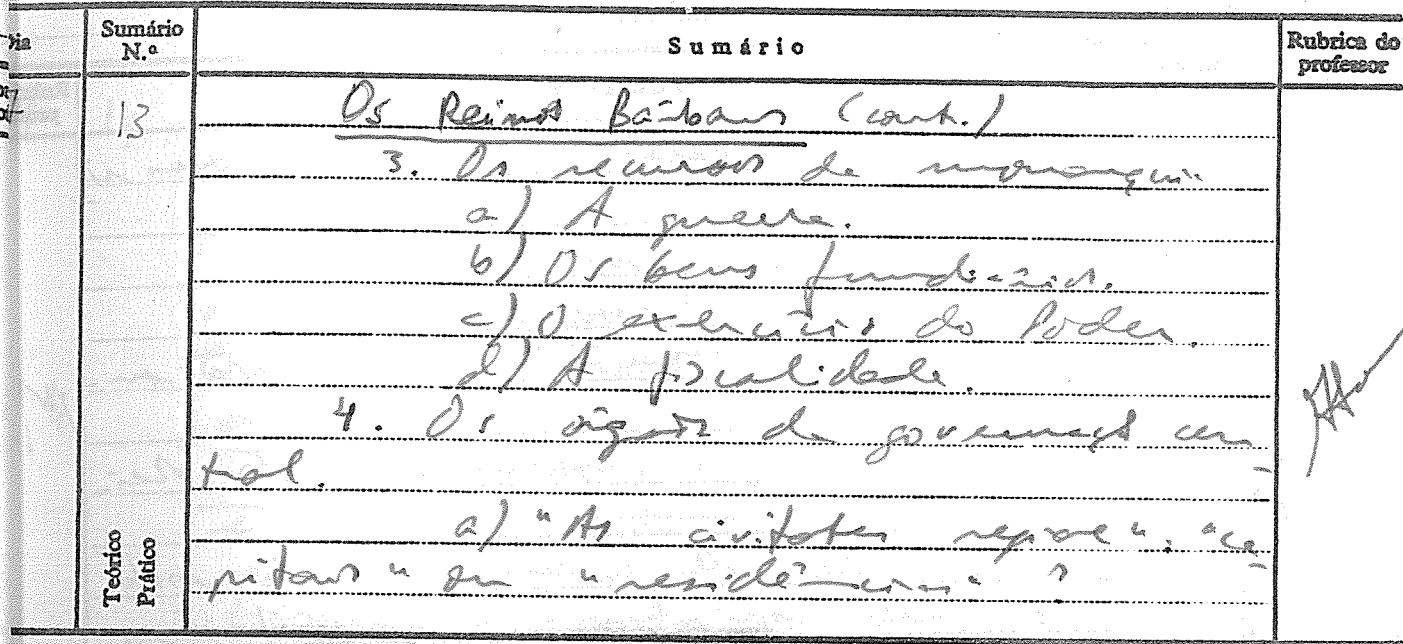 Dia
Sumário N.º
Sumário
Rubrica do professor
13
Os Reinos Bárbaros (cont.)
3. Os recursos da monarquia
a) A guerra.
b) Os bens fundiários.
c) O exercício do Poder.
d) A fiscalidade.
4. Os órgãos de governação cen-
tral.
a) "As civitates regiae": "ca-
pitais" ou "residências"?
Teórico
Prático